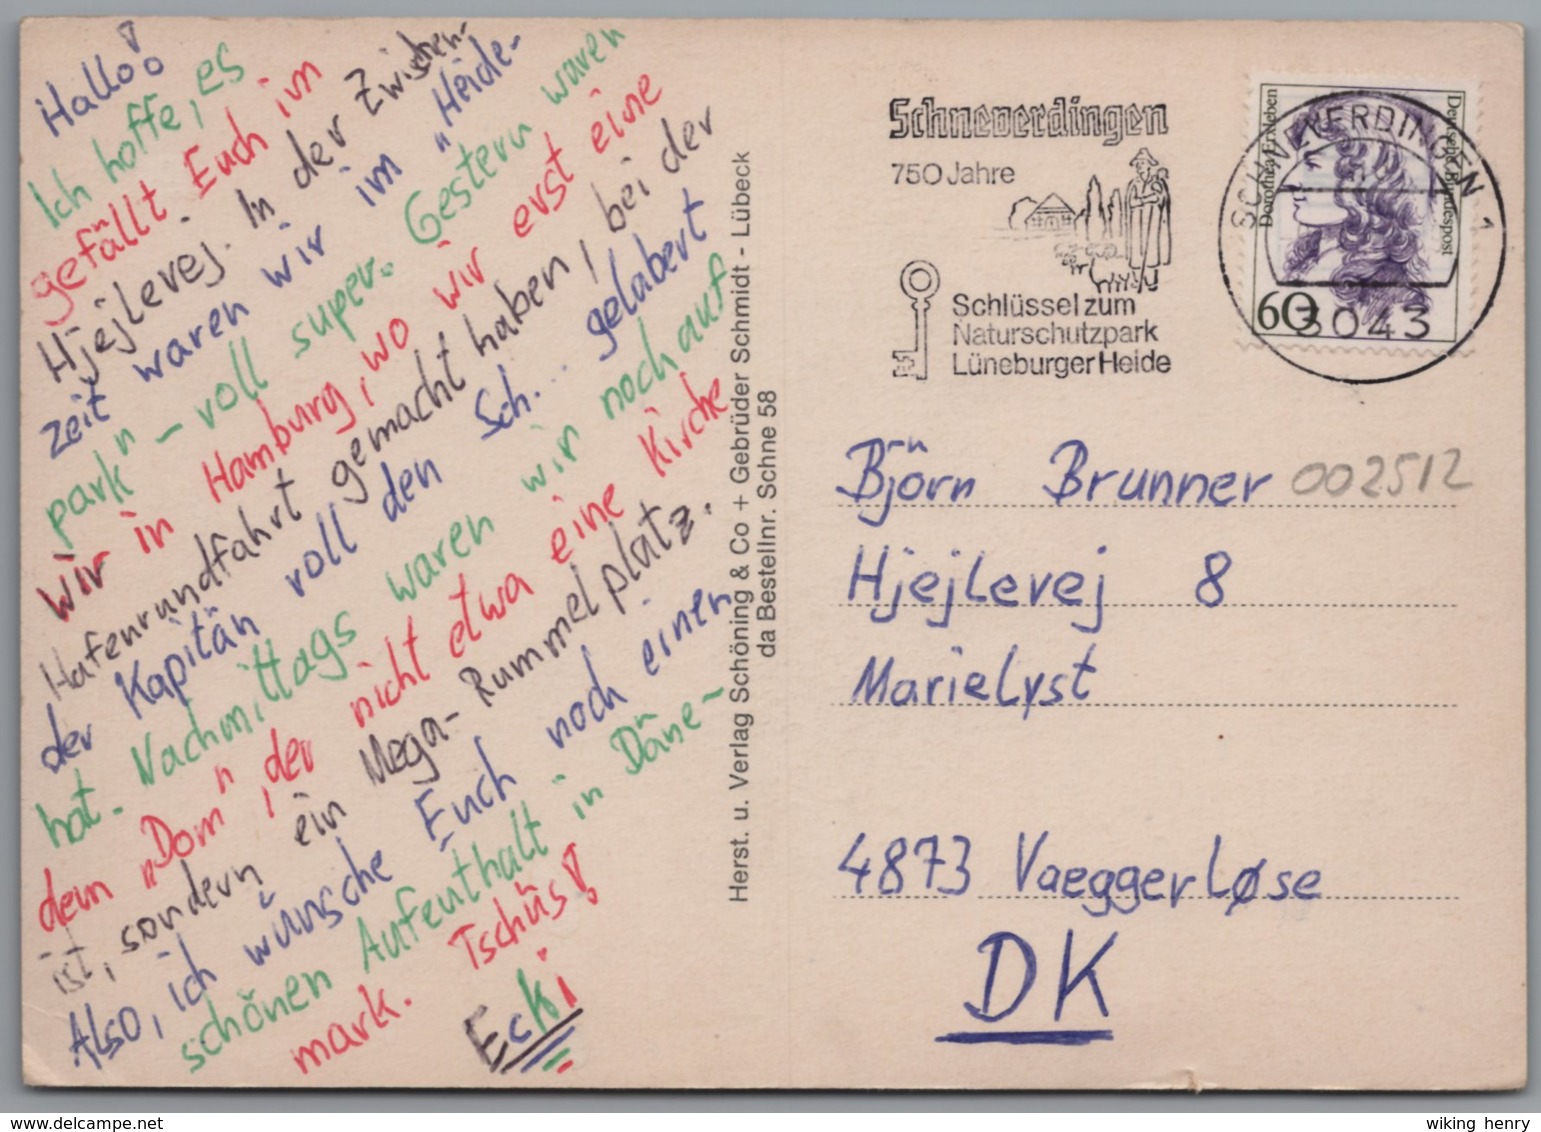 Hallo!
Ich hoffe, es
gefällt Euch im
Hjejlevej. In der Zwischen-
zeit waren wir im "Heide-
park" - voll super. Gestern waren
wir in Hamburg, wo wir erst eine
Hafenrundfahrt gemacht haben, bei der
der Kapitän voll den Sch... gelabert
hat. Nachmittags waren wir noch auf
dem "Dom", der nicht etwa eine Kirche
ist, sondern ein Mega-Rummelplatz.
Also, ich wünsche Euch noch einen
schönen Aufenthalt in Däne-
mark. Tschüs!
Ecki
Herst. u. Verlag Schöning & Co + Gebrüder Schmidt - Lübeck
da Bestellnr. Schne 58
Schneverdingen
750 Jahre
Schlüssel zum
Naturschutzpark
Lüneburger Heide
Dorothea Erxleben
Deutsche Bundespost
60
SCHNEVERDINGEN 1
3043
Björn Brunner
002512
Hjejlevej 8
Marielyst
4873 Vaeggerløse
DK
wiking henry